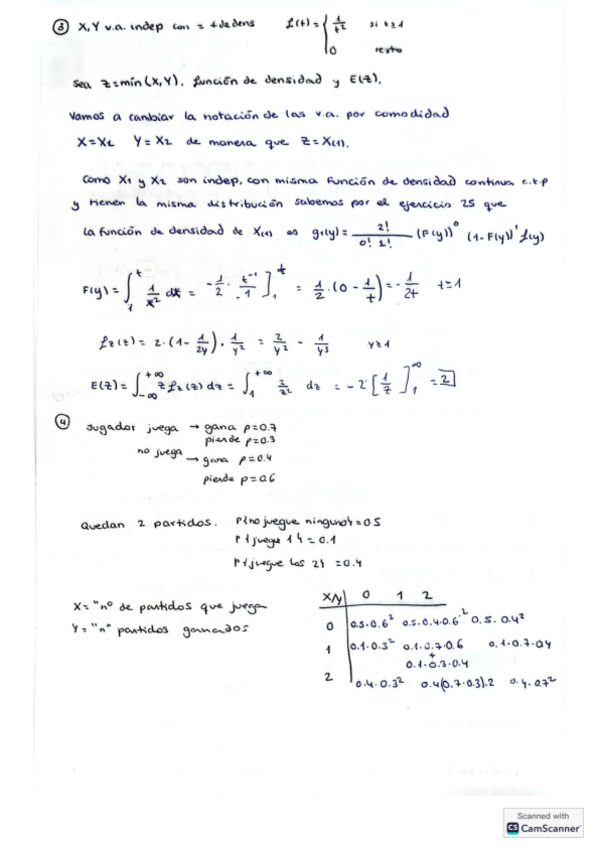 ③ X, Y v.a. indep con = f de dens f(t) = { 1/t² si t≥1
0 resto
sea Z=min(X,Y). función de densidad y E(Z).
Vamos a cambiar la notación de las v.a. por comodidad
X=X₁ Y=X₂ de manera que Z=X(1).
Como X₁ y X₂ son indep, con misma función de densidad continua c.t.p
y tienen la misma distribución sabemos por el ejercicio 25 que
la función de densidad de X(1) es g₁(y) = 2!/(0! 1!) (F(y))⁰ (1-F(y))¹ f(y)
F(y) = ∫₁ᵗ 1/x² dx = -1/2 · t⁻¹/1 ]₁ᵗ = 1/2 · (0 - 1/t) = -1/2t t≥1
f_Z(z) = 2·(1 - 1/2y) · 1/y² = 2/y² - 1/y³ y≥1
E(Z) = ∫₋∞⁺∞ z f_Z(z) dz = ∫₁⁺∞ 2/z² dz = -2 [1/z]₁^∞ = 2
④ Jugador juega → gana p=0.7
pierde p=0.3
no juega → gana p=0.4
pierde p=0.6
Quedan 2 partidos. P{no juegue ninguno} = 0.5
P{juegue 1} = 0.1
P{juegue los 2} = 0.4
X = "nº de partidos que juega
Y = "nº partidos ganados
X/Y 0 1 2
0 0.5·0.6² 0.5·0.4·0.6·2 0.5·0.4²
1 0.1·0.3² 0.1·0.7·0.6 0.1·0.7·0.4
+
0.1·0.3·0.4
2 0.4·0.3² 0.4(0.7·0.3)·2 0.4·0.7²
Scanned with
CS CamScanner